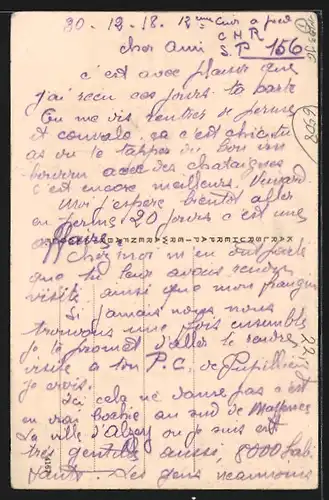 20-12-18. 12ème Cuir à pied
C H R
S. P 156
Cher Ami
C'est avec plaisir que
j'ai reçu ces jours ta carte
Tu me dis rentrer de perme
et convalo. ça c'est chic tu
as du te tapper du bon vin
nouveau avec des chataignes
c'est encore meilleurs. Veinard
Moi j'espère bientôt aller
en perme 20 jours c'est une
affaire.
Chez moi m'en ont parlé
que tu leur avais rendu
visite ainsi que mon frangin
Si jamais nous nous
trouvons une fois ensemble
je te promet d'aller te rendre
visite à ton P.C. de
je crois.
Ici cela ne danse pas c'est
en vrai bochie au sud de Mayence
La ville d'Alzey ou je suis est
très gentille aussi, 8000 hab
itants. Les gens